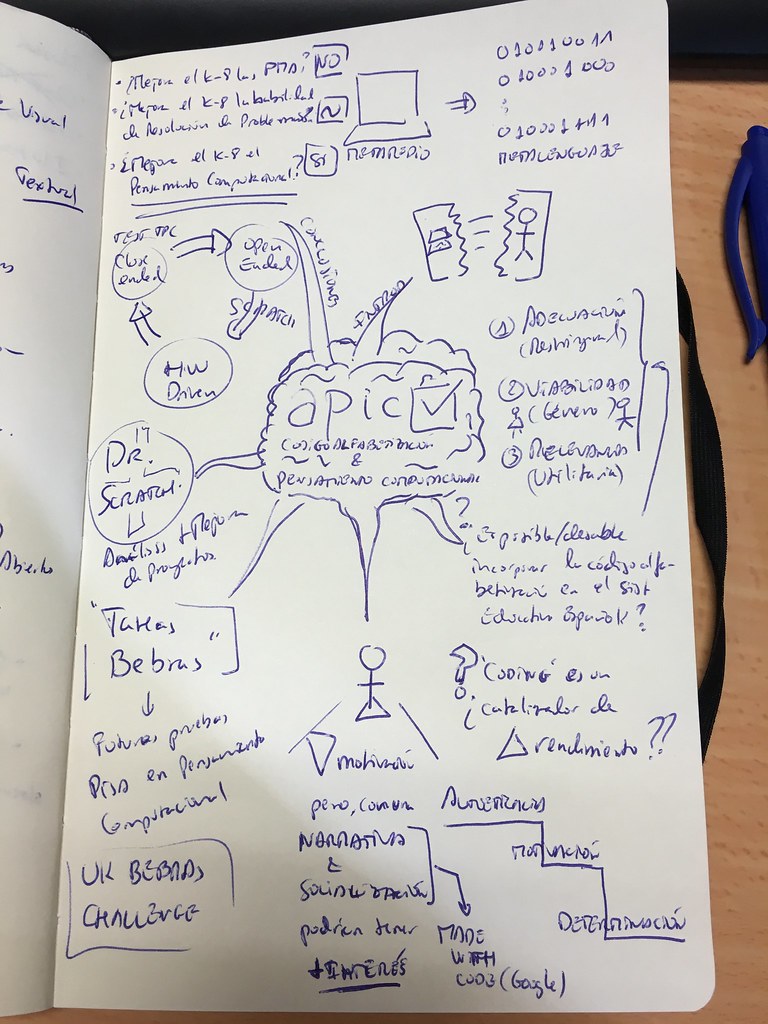 e Visual
Textual
Abierto
· ¿Mejora el K-8 las PMA? NO
· ¿Mejora el K-8 la habilidad
de Resolución de Problemas?
· ¿Mejora el K-8 el
Pensamiento Computacional? SI
METAMEDIO
01001001
01000
01000
METALENGUAJE
TEST TPC
Close
ended
Open
Ended
SCRATCH
HW
Driven
CONCLUSIONES
INTROD
apic
CODIGOALFABETIZACIÓN
&
PENSAMIENTO COMPUTACIONAL
① ADECUACIÓN
② VIABILIDAD
(Género)
③ RELEVANCIA
(Utilitaria)
DR.
SCRATCH
Análisis + Mejora
de Proyectos
?
¿Es posible/deseable
incorporar la códigoalfa-
betización en el Sist
Educativo Español?
"Tareas
Bebras"
Futuras pruebas
PISA en Pensamiento
Computacional
UK BEBRAS
CHALLENGE
? 'CODING' es un
¿ catalizador de
rendimiento??
motivación
pero, con una
NARRATIVA
&
SOCIALIZACIÓN
podrían tener
+INTERÉS
MADE
WITH
CODE (Google)
AUTOEFICACIA
MOTIVACIÓN
DETERMINACIÓN